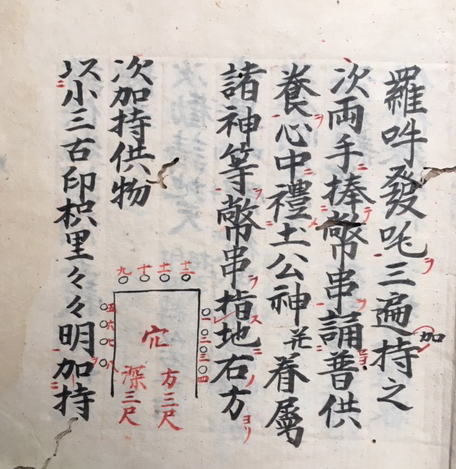 羅吽發吒三遍加持之
次兩手捧幣串誦普供
養心中禮土公神并眷屬
諸神等幣串指地右方
次加持供物
以小三古印枳里々々明加持
一 二 三 四
五 六 七 八
九 十 十一 十二
穴
方三尺
深三尺